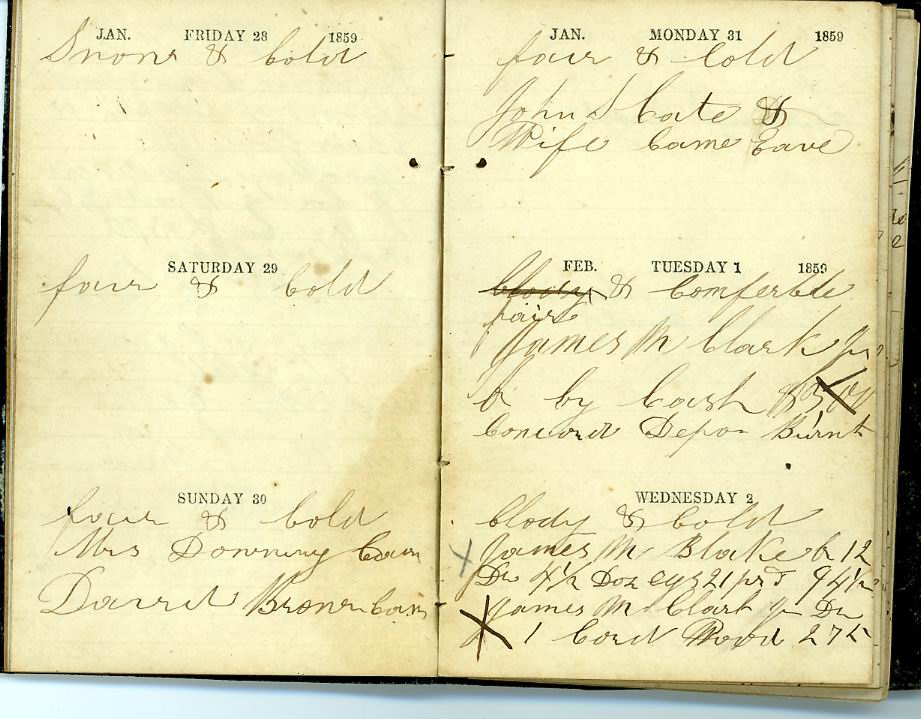 JAN. FRIDAY 28 1859
Snow & Cold
SATURDAY 29
fair & Cold
SUNDAY 30
fair & Cold
Mrs Downing Cam
David Brown Cam
JAN. MONDAY 31 1859
fair & Cold
John S Cate &
Wife Came Eave
FEB. TUESDAY 1 1859
Clody & Comfertble
fair
James M Clark Jr
Cr by Cash
Concord Depo Burnt
WEDNESDAY 2
Clody & Cold
James M Blake Cr 12
Dr 4½ Doz egs 21 94½
James M Clark Jr Dr
1 Cord Wood 275